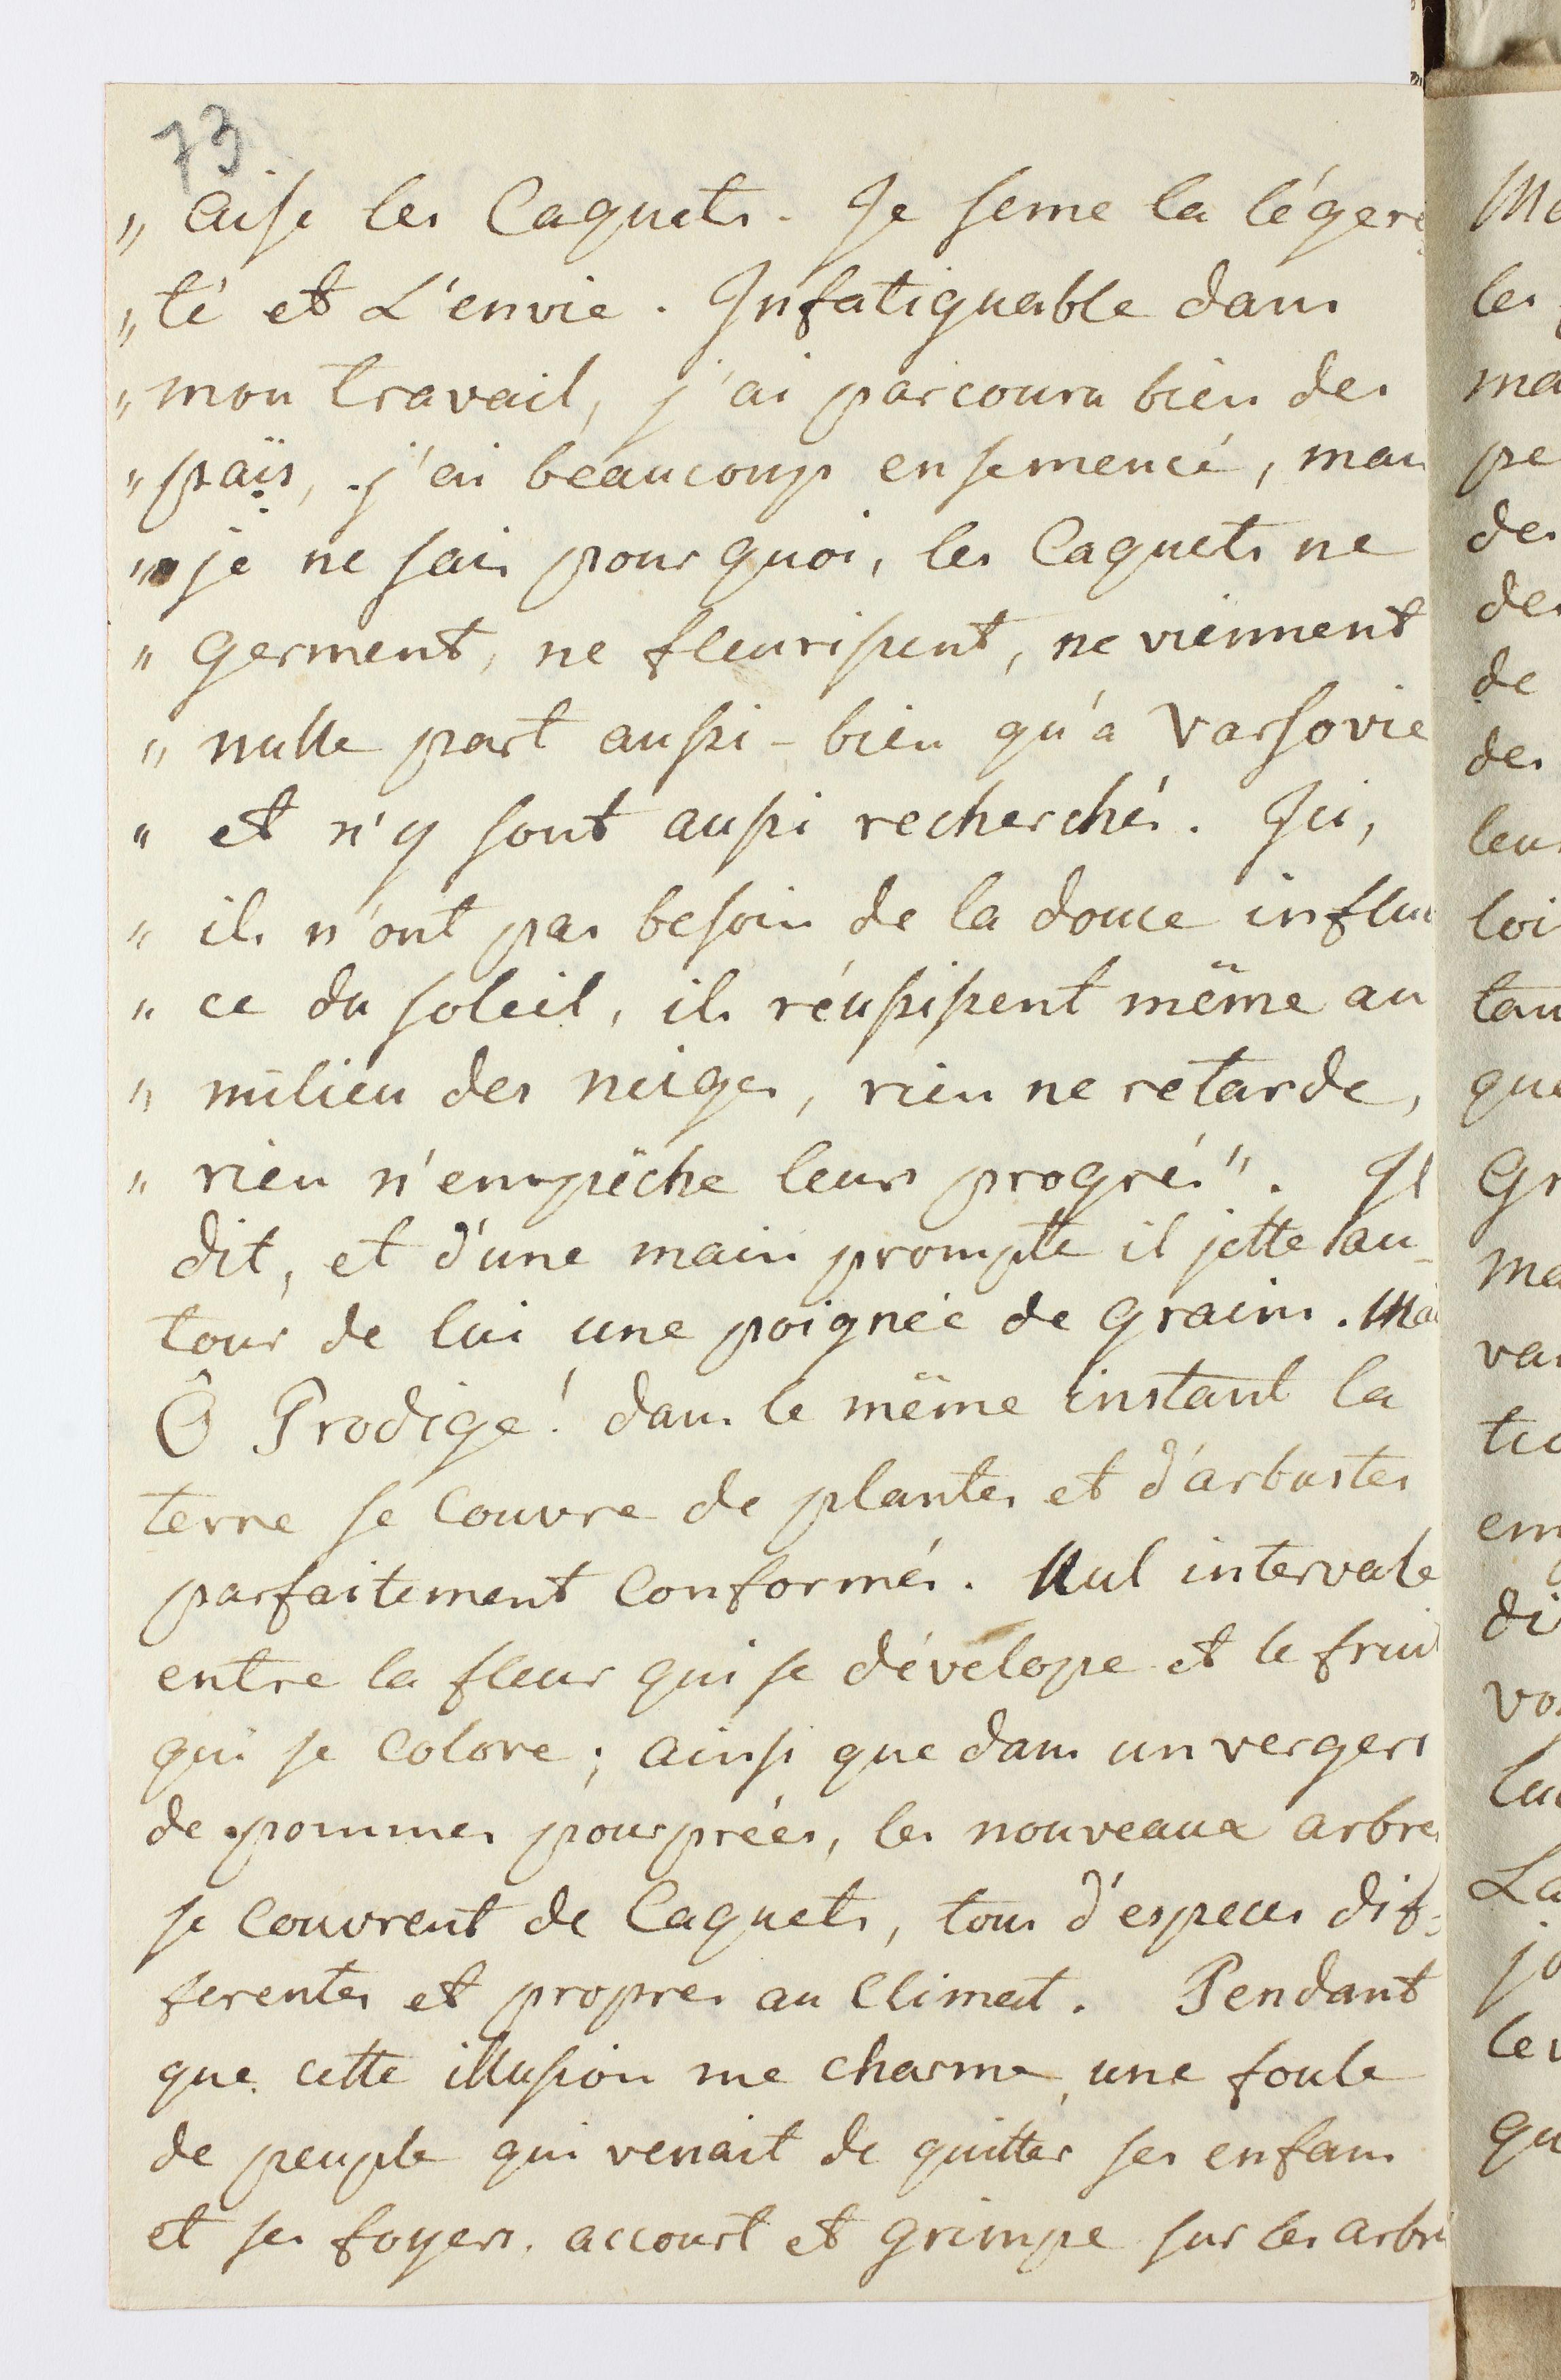 73
„ aise les Caquets. Je seme la légere
„ té et L'envie. Infatiguable dans
„ mon travail, j'ai parcouru bien des
„ païs, j'ai beaucoup ensemencé, mais
„ je ne sais pourquoi, les Caquets ne
„ germent, ne fleurissent, ne viennent
„ nulle part aussi-bien qu'a Varsovie
„ et n'y sont aussi recherchés. Ici,
„ ils n'ont pas besoin de la douce influen
„ ce du soleil, ils réussissent même au
„ milieu des neiges, rien ne retarde,
„ rien n'empêche leurs progrés". Il
dit, et d'une main prompte il jette au-
tour de lui une poignée de grains. Mais
Ô Prodige! dans le même instant la
terre se couvre de plantes et d'arbustes
parfaitement Conformés. Nul intervale
entre la fleur qui se dévélope et le fruit
qui se colore; ainsi que dans un vergers
de pommes pourprées, les nouveaux arbres
se couvrent de Caquets, tous d'especes dif-
ferentes et propres au Climat. Pendant
que cette illusion me charme, une foule
de peuple qui venait de quitter ses enfans
et ses foyers, accourt et grimpe sur les arbres